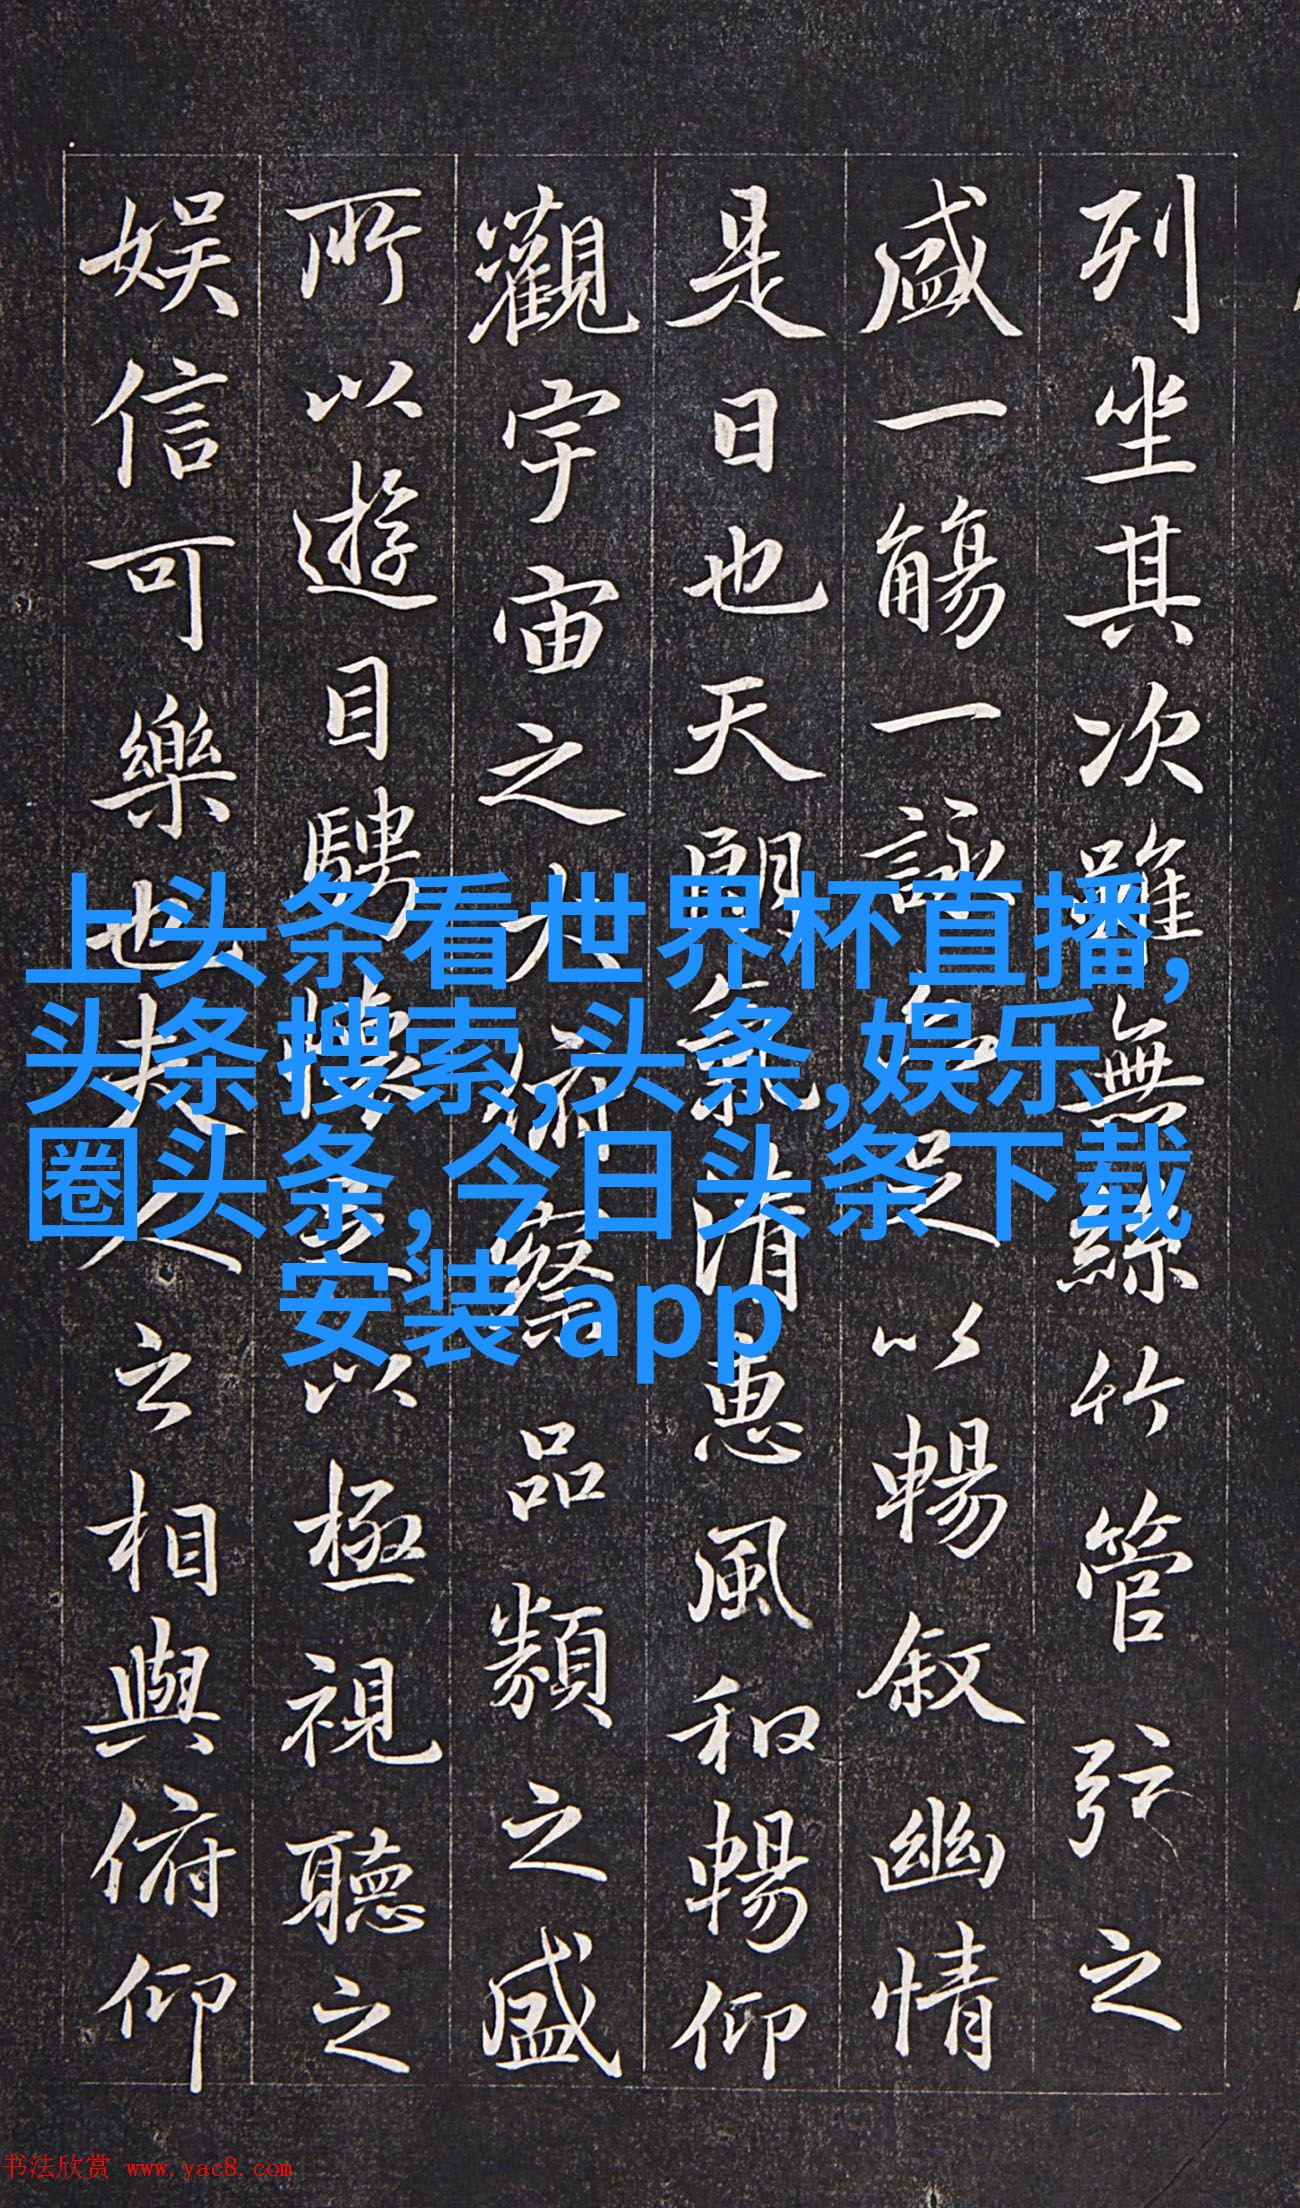 列坐其次雖無絲竹管弦之
盛一觴一詠亦足以暢敘幽情
是日也天朗氣清惠風和暢仰
觀宇宙之大俯察品類之盛
所以遊目騁懷足以極視聽之
娛信可樂也夫人之相與俯仰
上头条看世界杯直播,
头条搜索,头条,娱乐
圈头条, 今日头条下载
安装 app
书法欣赏 www.yac8.com